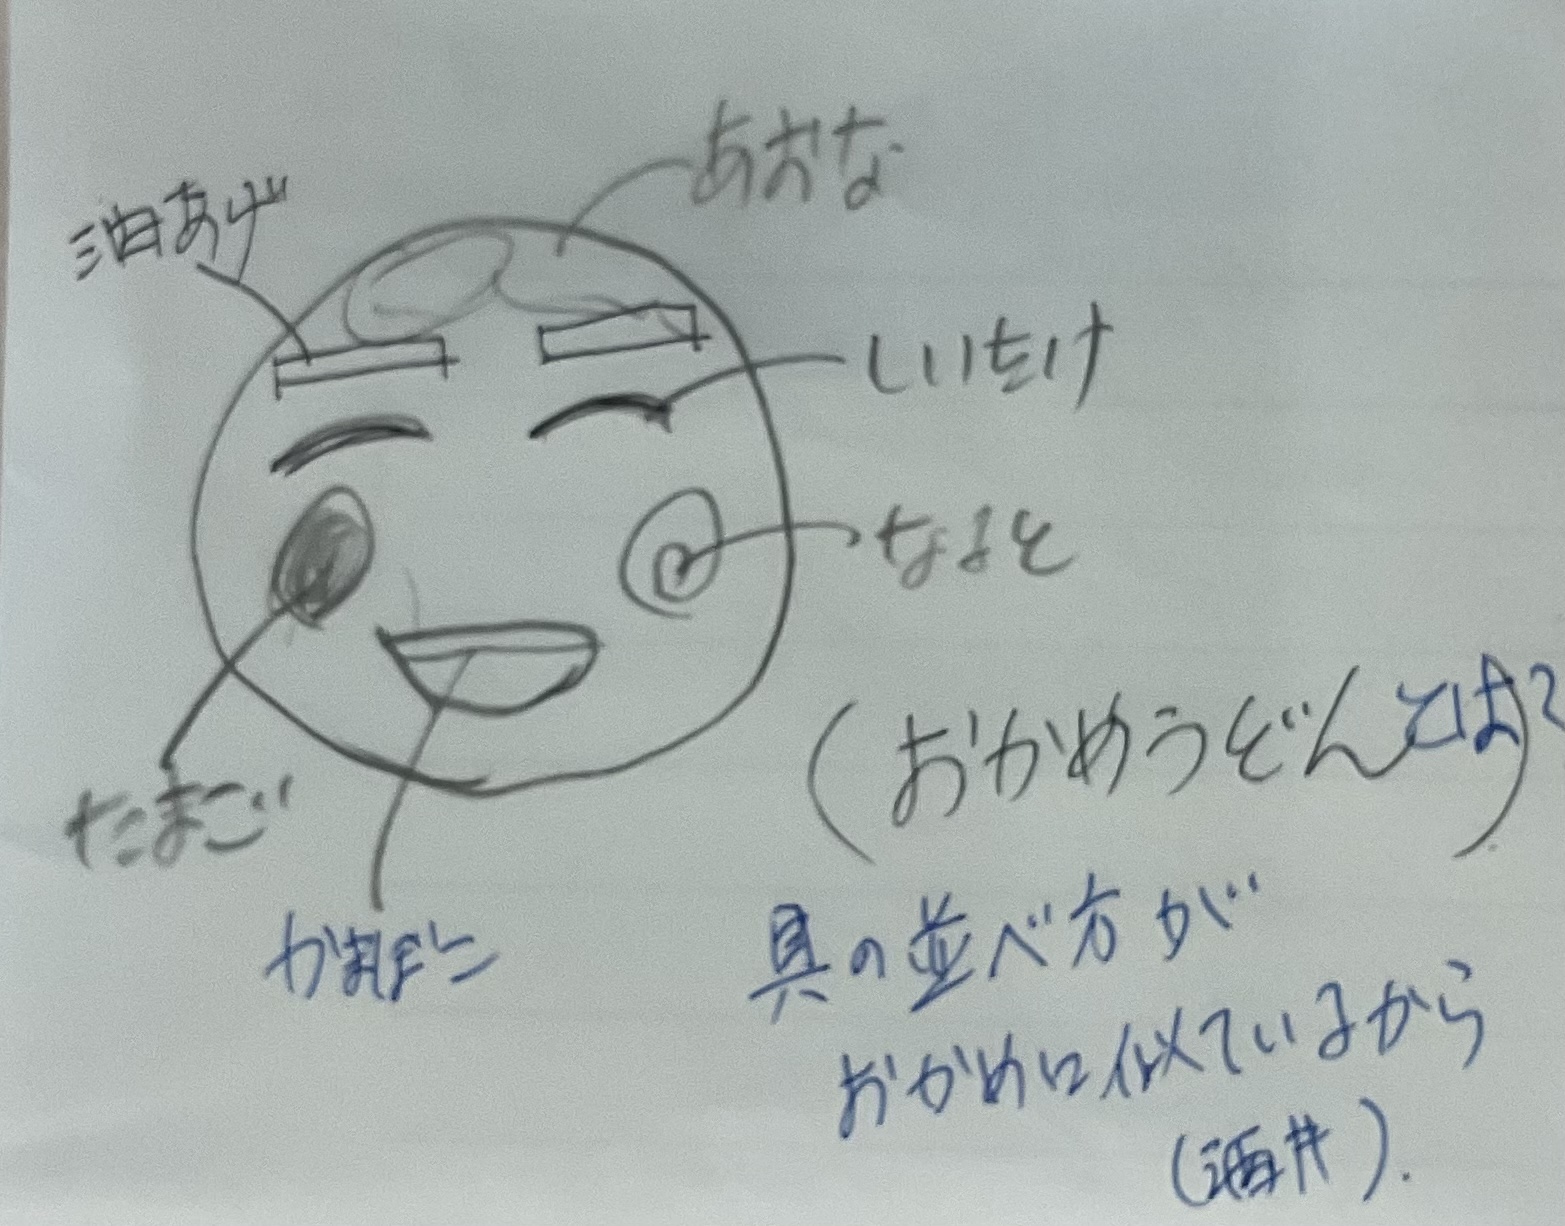 あおな
油あげ
しいたけ
なると
たまご
かまぼこ
(おかめうどんとは?)
具の並べ方が
おかめに似ているから
(酒井).